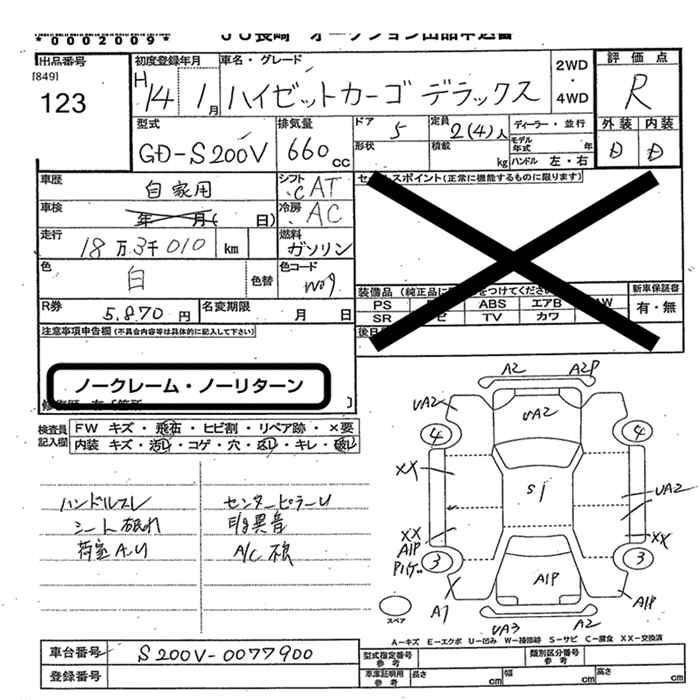 *0002009*
JU長崎 オークション出品申込書
出品番号
[849]
123
初度登録年月
H14年 1月
車名・グレード
ハイゼットカーゴ デラックス
2WD・4WD
評価点
R
外装 内装
D D
型式
GD-S200V
排気量
660cc
ドア 5
形状
定員 2(4)人
積載 kg
ディーラー・並行
モデル年式 年
ハンドル 左・右
車歴
自家用
シフト
CAT
車検
年 月( 日)
冷房
AC
走行
18万3千010 km
燃料
ガソリン
色
白
色替
色コード
W09
R券
5,870円
名変期限 月 日
セールスポイント(正常に機能するものに限ります)
装備品
PS ABS エアB AW
SR TV カワ
新車保証書
有・無
後日
注意事項申告欄(不具合内容等は具体的に記入して下さい)
ノークレーム・ノーリターン
検査員記入欄
FW キズ・飛石・ヒビ割・リペア跡・×要
内装 キズ・汚レ・コゲ・穴・返し・キレ・破レ
ハンドルスレ センターピラーU
シート破れ E/g異音
荷室A.U A/C 根
A2 A2P
UA2 UA2
4 4
XX S1 UA2
XX XX
A1P
3 3
A1P
A1 A1P
UA3 A2
スペア
A−キズ E−エクボ U−凹み W−補修跡 S−サビ C−腐食 XX−交換済
車台番号 S200V-0077900
登録番号
型式指定番号参考 類別区分番号参考
車庫証明用参考 長さ cm 幅 cm 高さ cm